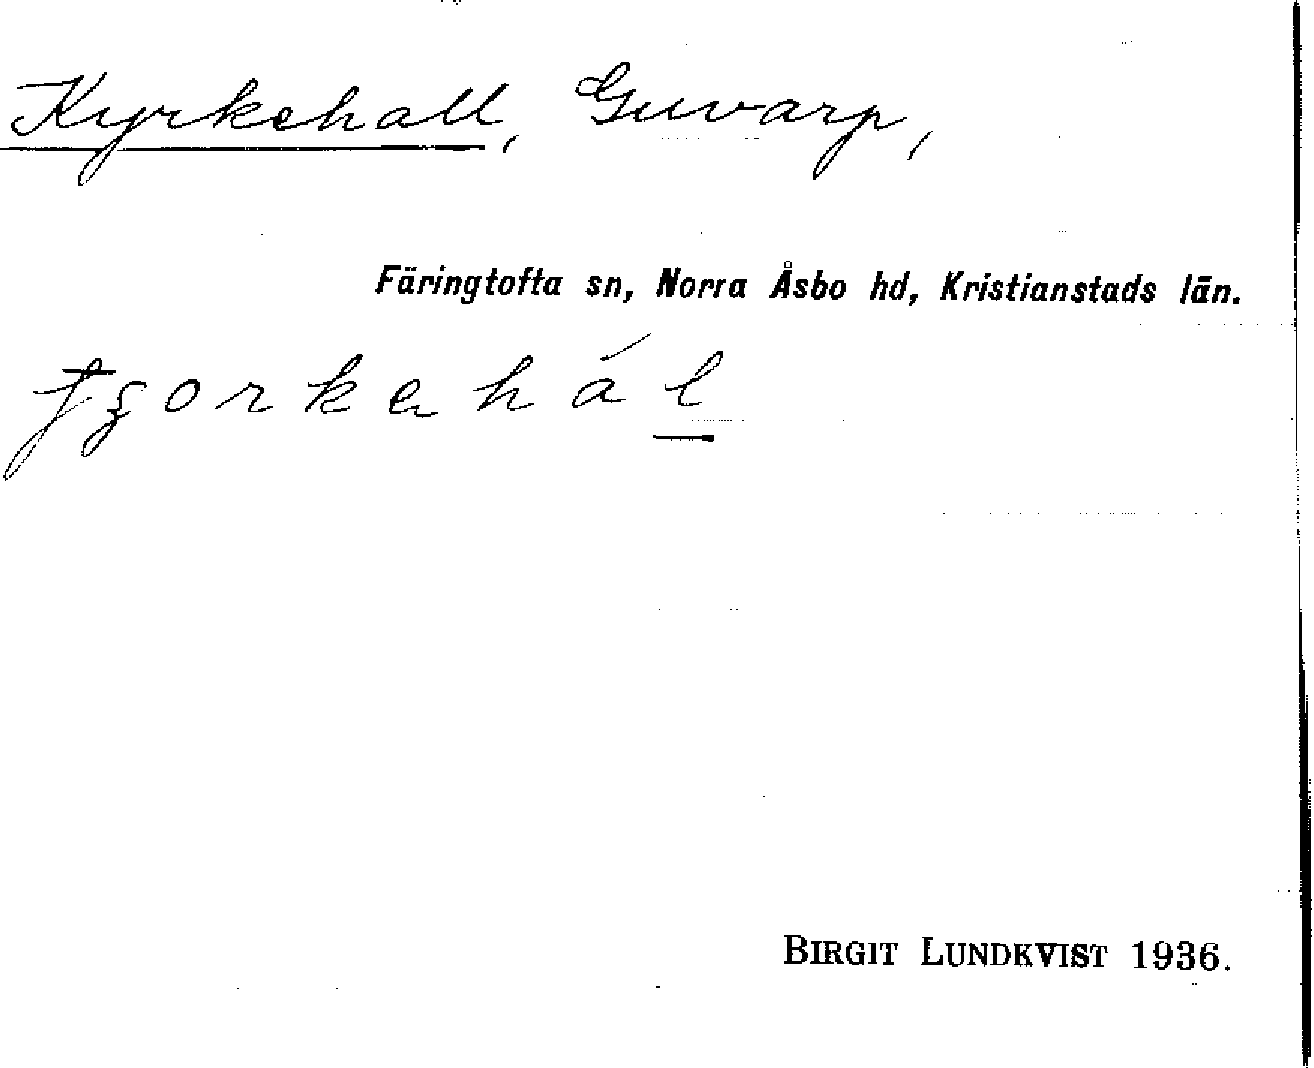 Kyrkehall, Guvarp,
Färingtofta sn, Norra Åsbo hd, Kristianstads län.
BIRGIT LUNDKVIST 1936.